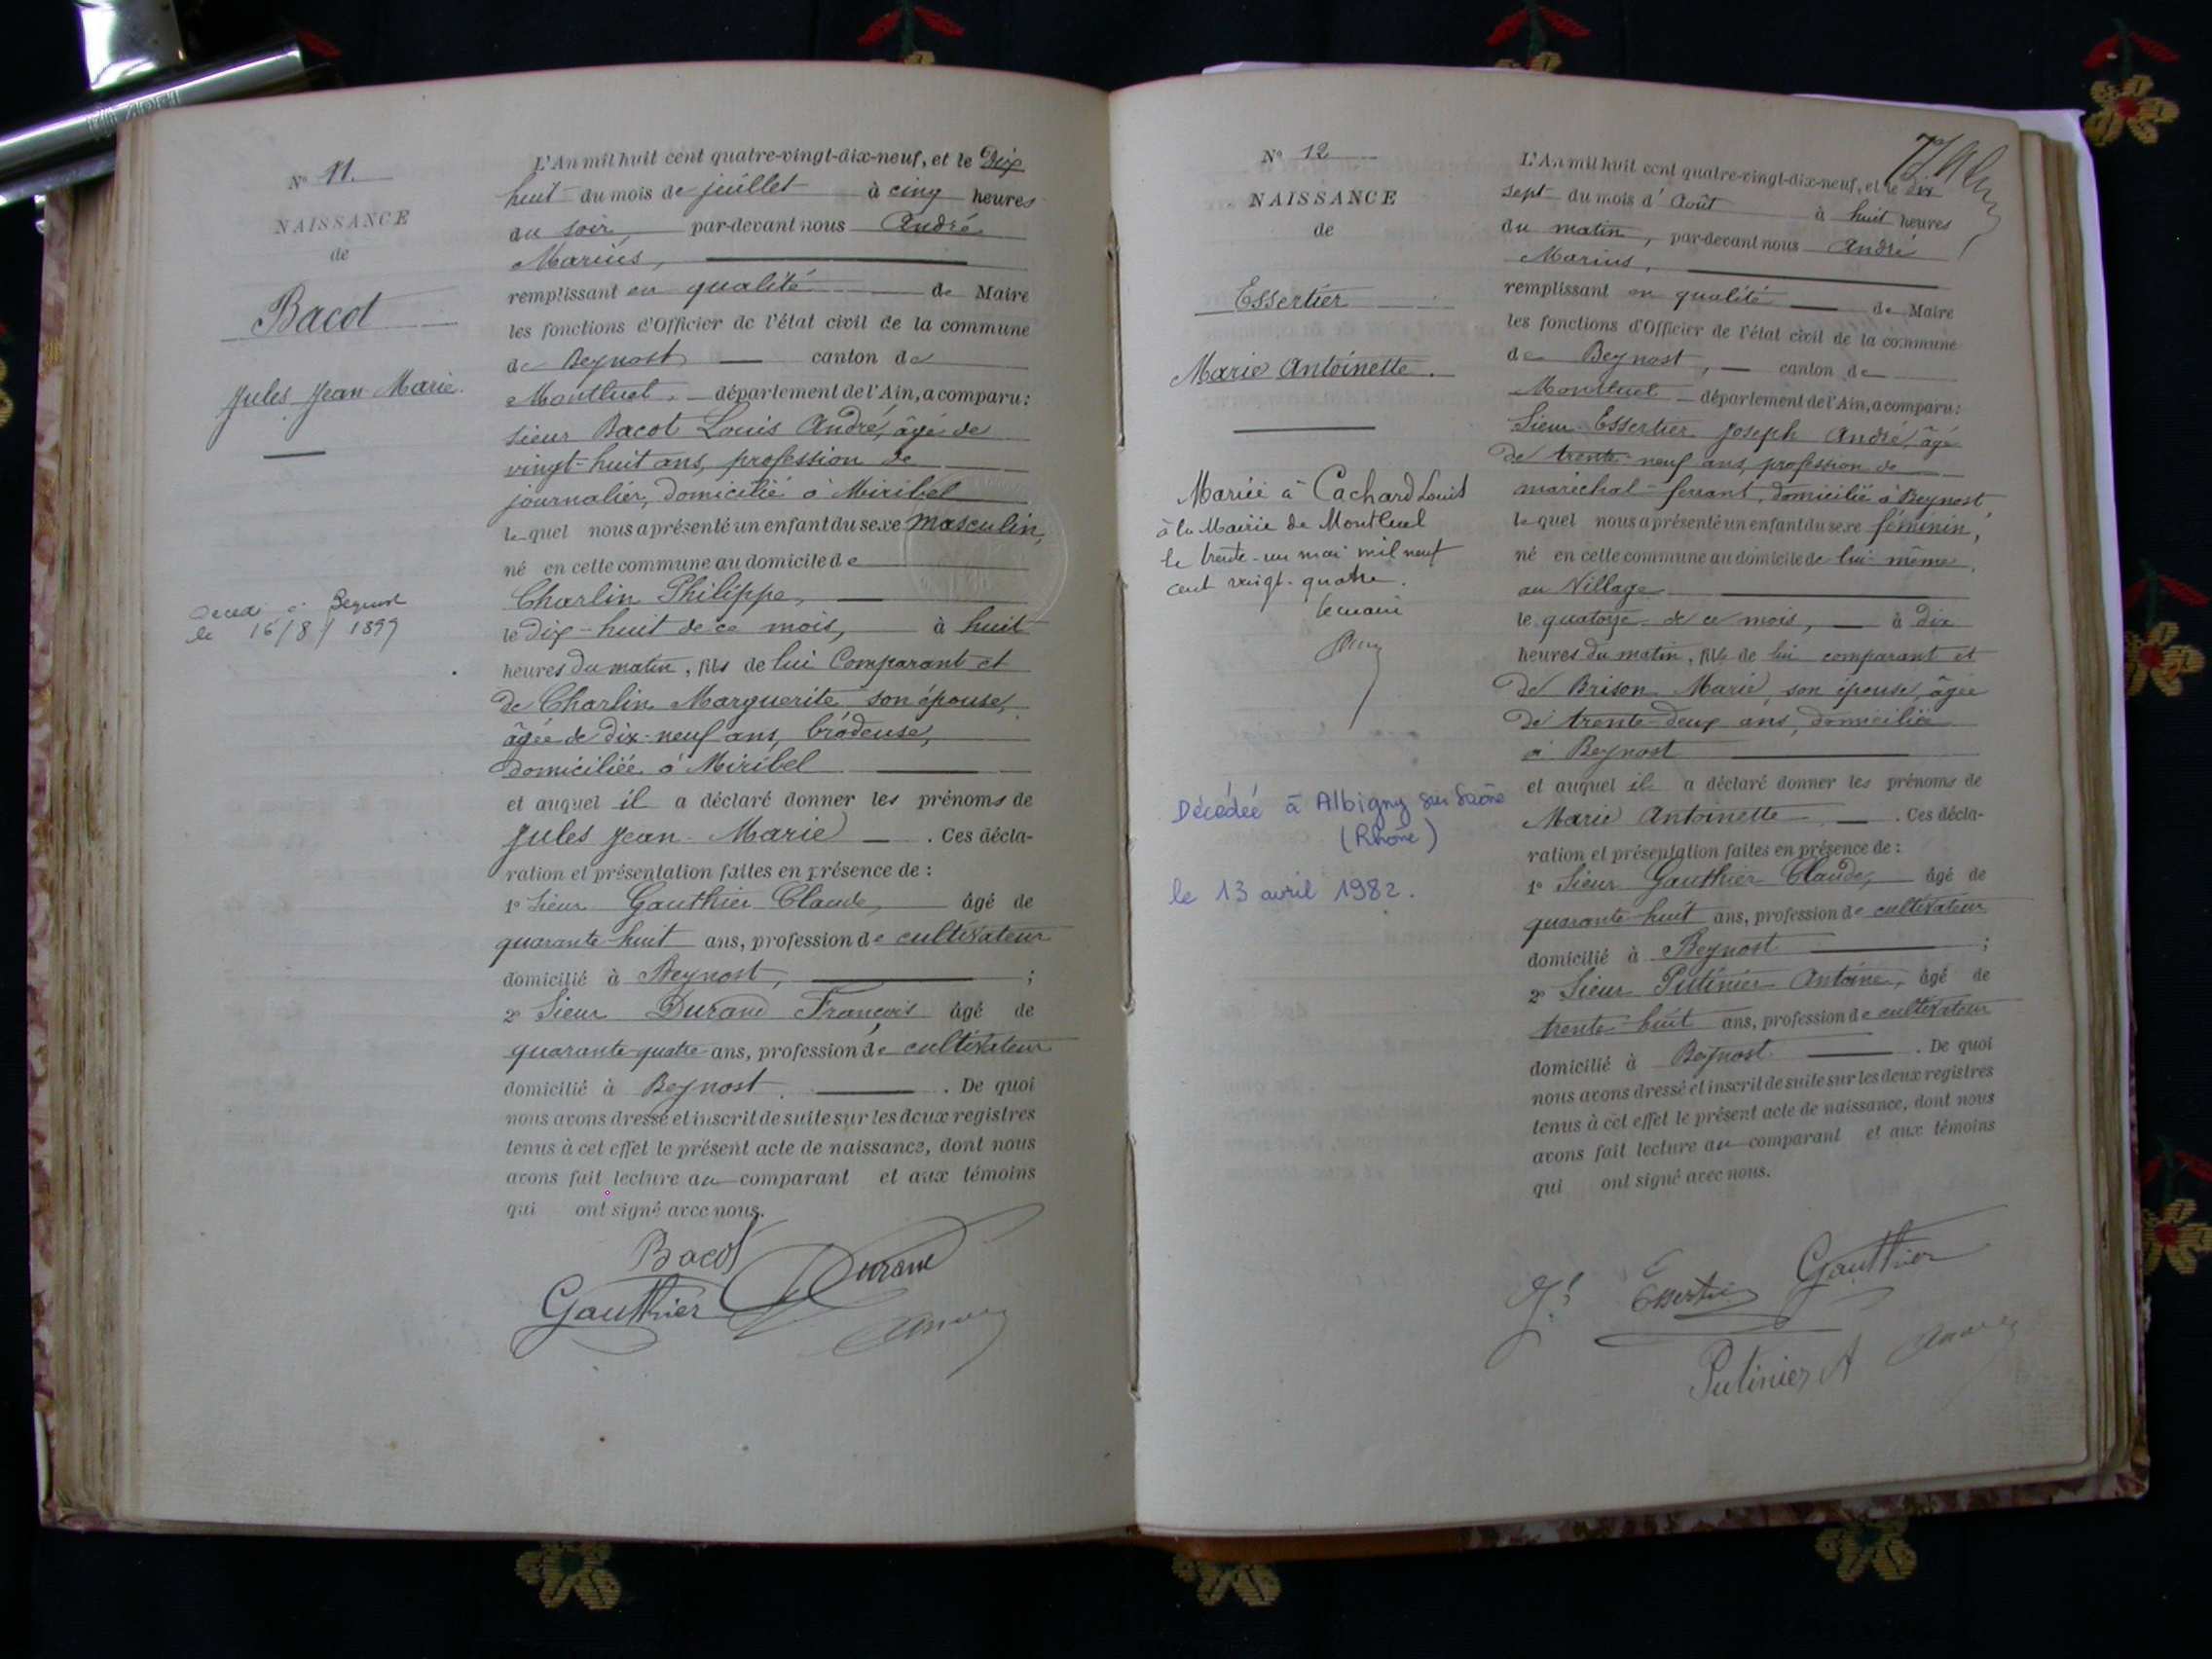 N° 11.
NAISSANCE
de
Bacot
Jules Jean Marie.
Beynost
le 16/8/1899
L'An mil huit cent quatre-vingt-dix-neuf, et le Dix
huit du mois de juillet à cinq heures
du soir, par-devant nous André
Marius,
remplissant en qualité de Maire
les fonctions d'Officier de l'état civil de la commune
de Beynost canton de
Montluel, département de l'Ain, a comparu:
sieur Bacot Louis André, âgé de
vingt-huit ans, profession de
journalier, domicilié à Miribel
lequel nous a présenté un enfant du sexe masculin,
né en cette commune au domicile de
Charlin Philippe,
le dix-huit de ce mois, à huit
heures du matin, fils de lui Comparant et
de Charlin Marguerite son épouse,
âgée de dix-neuf ans, brodeuse,
domiciliée à Miribel
et auquel il a déclaré donner les prénoms de
Jules Jean-Marie. Ces décla-
ration et présentation faites en présence de :
1° Sieur Gauthier Claude, âgé de
quarante-huit ans, profession de cultivateur
domicilié à Beynost, ;
2° Sieur Durand François âgé de
quarante-quatre ans, profession de cultivateur
domicilié à Beynost. De quoi
nous avons dressé et inscrit de suite sur les deux registres
tenus à cet effet le présent acte de naissance, dont nous
avons fait lecture au comparant et aux témoins
qui ont signé avec nous.
Bacot
Gauthier Durand
N° 12
NAISSANCE
de
Essertier
Marie Antoinette.
Mariée à Cachard Louis
à la Mairie de Montluel
le trente-un mai mil neuf
cent vingt-quatre.
le maire
Décédée à Albigny sur Saône
(Rhône)
le 13 avril 1982.
L'An mil huit cent quatre-vingt-dix-neuf, et le dix
sept du mois d'Août à huit heures
du matin, par-devant nous André
Marius,
remplissant en qualité de Maire
les fonctions d'Officier de l'état civil de la commune
de Beynost, canton de
Montluel département de l'Ain, a comparu:
Sieur Essertier Joseph André, âgé
de trente-neuf ans, profession de
maréchal-ferrant, domicilié à Beynost
lequel nous a présenté un enfant du sexe féminin,
né en cette commune au domicile de lui-même,
au Village
le quatorze de ce mois, à dix
heures du matin, fille de lui comparant et
de Brison Marie, son épouse, âgée
de trente-deux ans, domiciliée
à Beynost
et auquel il a déclaré donner les prénoms de
Marie Antoinette. Ces décla-
ration et présentation faites en présence de :
1° Sieur Gauthier Claude, âgé de
quarante-huit ans, profession de cultivateur
domicilié à Beynost ;
2° Sieur Putinier Antoine, âgé de
trente-huit ans, profession de cultivateur
domicilié à Beynost. De quoi
nous avons dressé et inscrit de suite sur les deux registres
tenus à cet effet le présent acte de naissance, dont nous
avons fait lecture au comparant et aux témoins
qui ont signé avec nous.
Essertier Gauthier
Putinier A